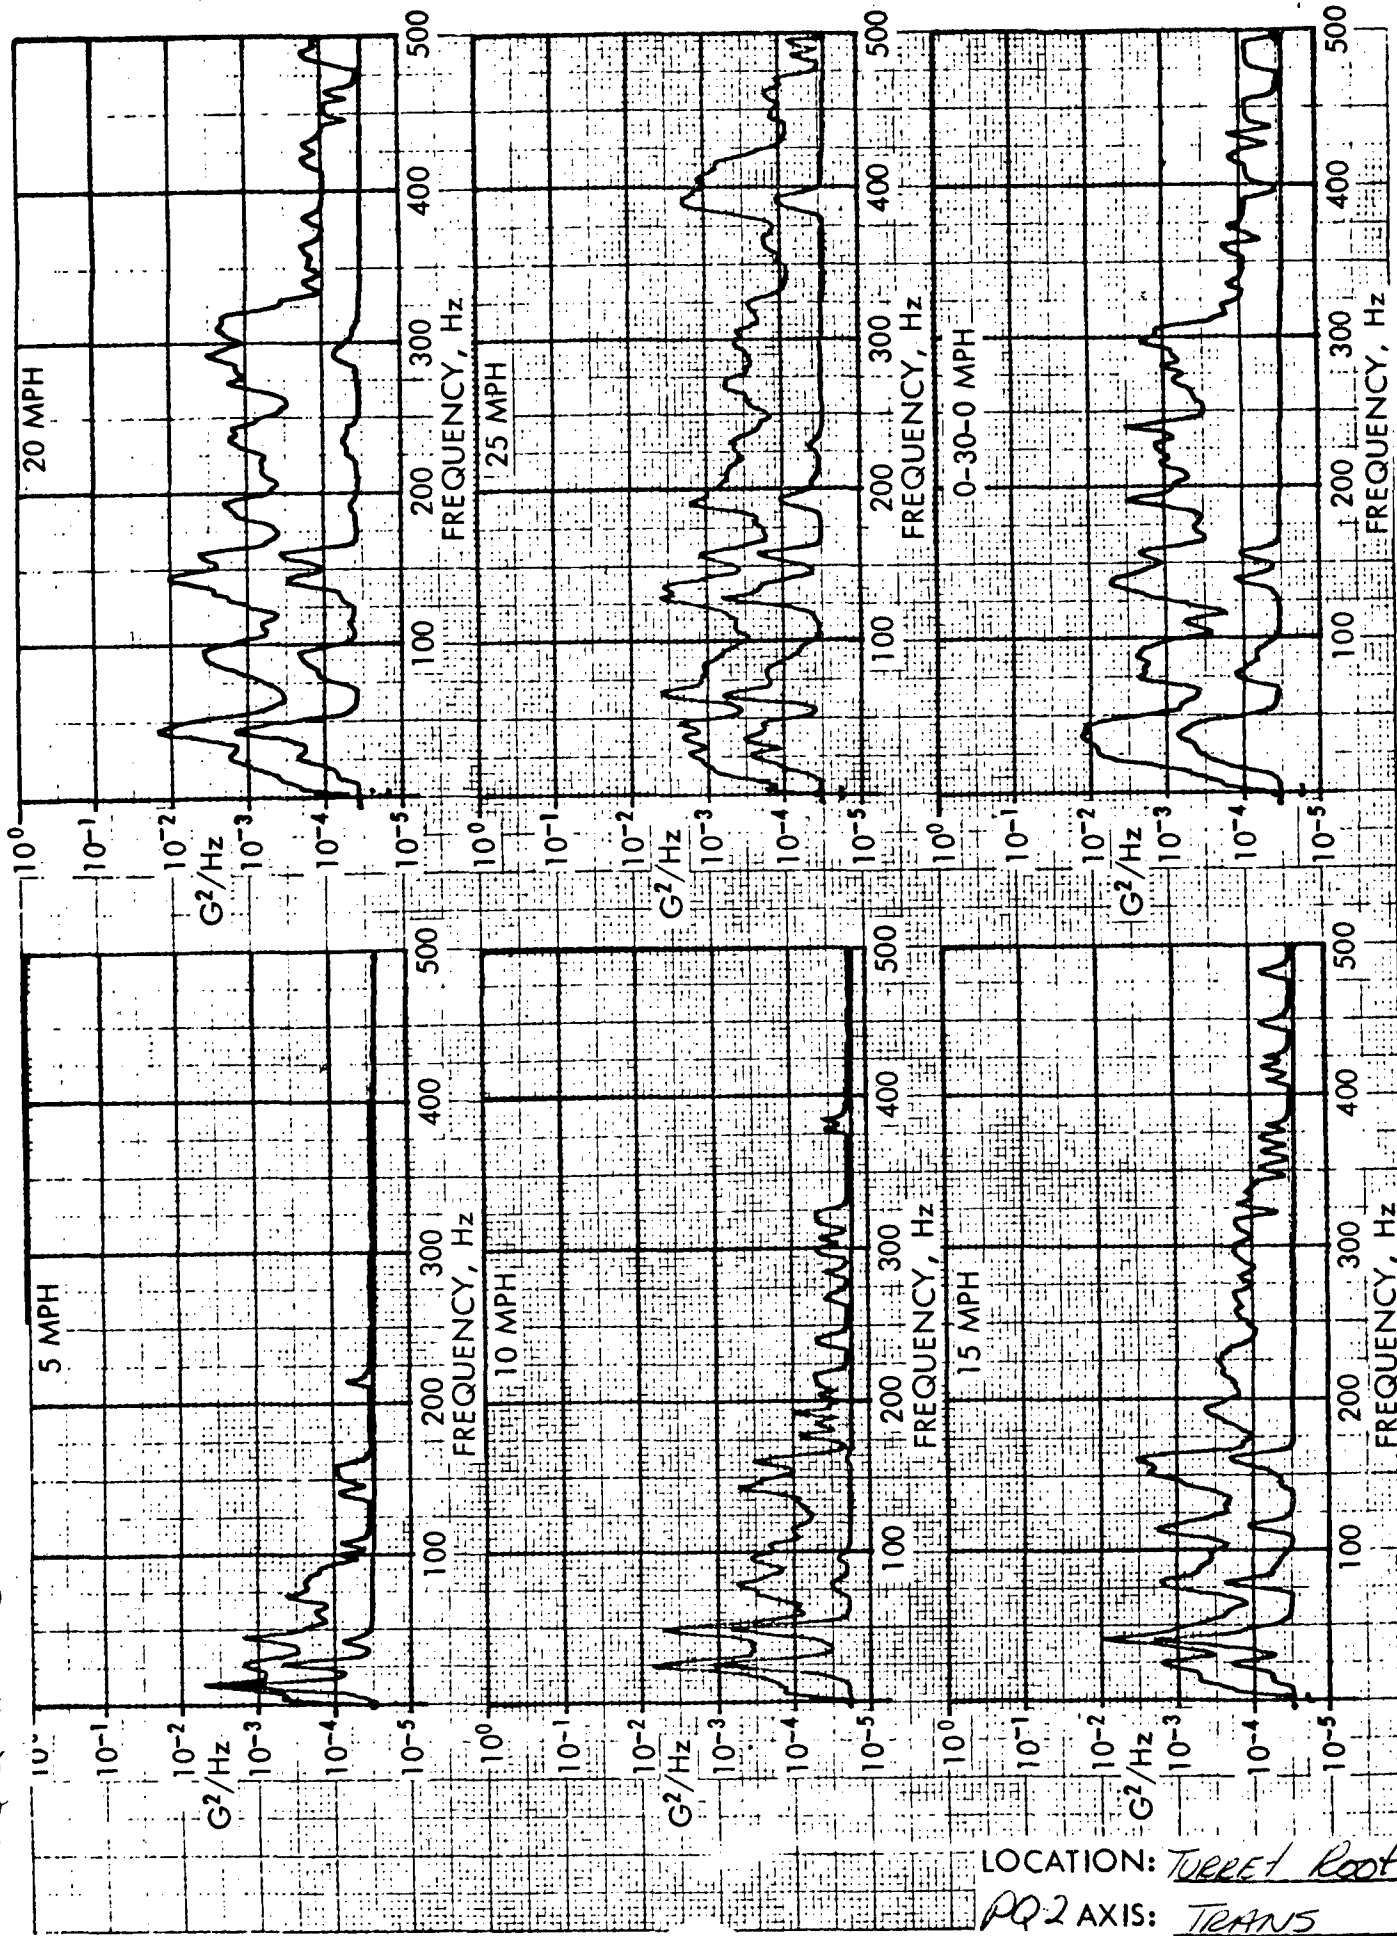 5 MPH
10⁰
10⁻¹
10⁻²
G²/Hz
10⁻³
10⁻⁴
10⁻⁵
100
200
300
400
500
FREQUENCY, Hz
20 MPH
10⁰
10⁻¹
10⁻²
G²/Hz
10⁻³
10⁻⁴
10⁻⁵
100
200
300
400
500
FREQUENCY, Hz
10 MPH
10⁰
10⁻¹
10⁻²
G²/Hz
10⁻³
10⁻⁴
10⁻⁵
100
200
300
400
500
FREQUENCY, Hz
25 MPH
10⁰
10⁻¹
10⁻²
G²/Hz
10⁻³
10⁻⁴
10⁻⁵
100
200
300
400
500
FREQUENCY, Hz
15 MPH
10⁰
10⁻¹
10⁻²
G²/Hz
10⁻³
10⁻⁴
10⁻⁵
100
200
300
400
500
FREQUENCY, Hz
0-30-0 MPH
10⁰
10⁻¹
10⁻²
G²/Hz
10⁻³
10⁻⁴
10⁻⁵
100
200
300
400
500
FREQUENCY, Hz
LOCATION: TURRET
PQ2 AXIS: TRANS